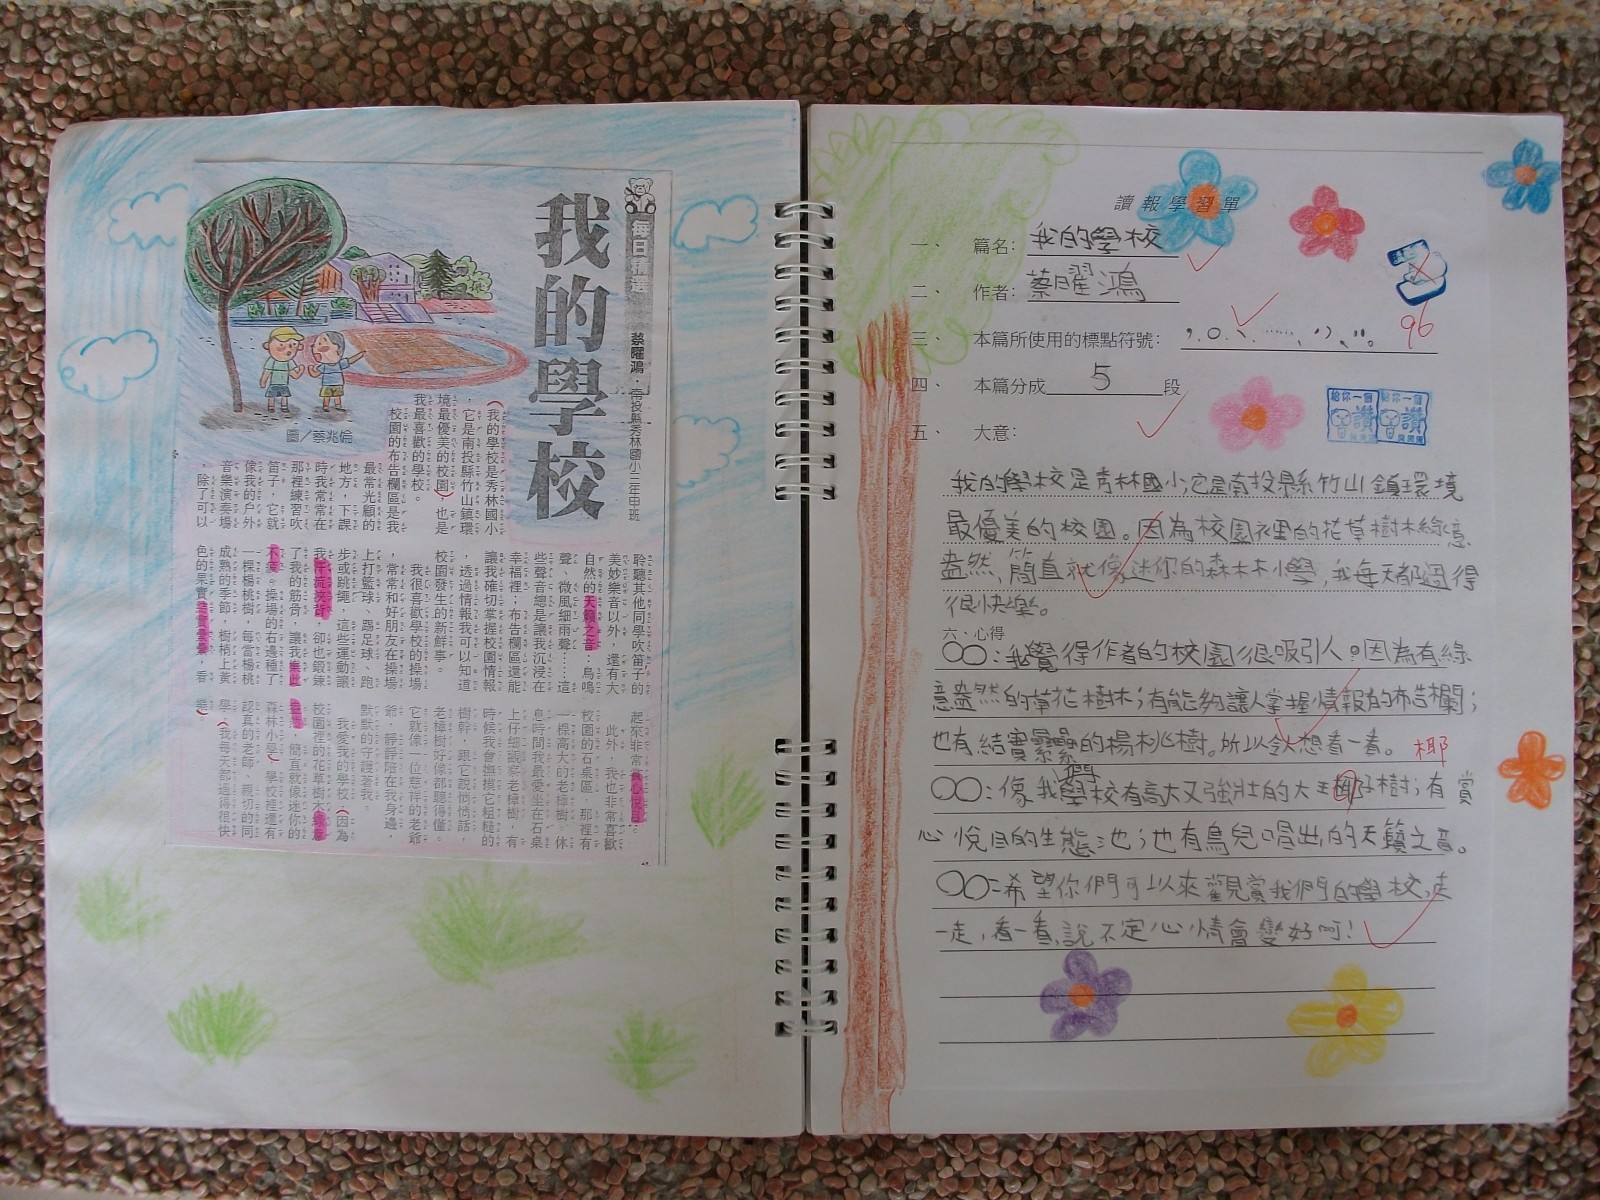 每日精選
我的學校
蔡曜鴻・南投縣秀林國小二年甲班
圖／蔡兆倫
（我的學校是秀林國小
，它是南投縣竹山鎮環
境最優美的校園），也是
我最喜歡的學校。
校園的布告欄區是我
最常光顧的
地方，下課
時我常常在
那裡練習吹
笛子，它就
像我的戶外
音樂演奏場
，除了可以
聆聽其他同學吹笛子的
美妙樂音以外，還有大
自然的天籟之音：鳥鳴
聲、微風細雨聲……這
些聲音總是讓我沉浸在
幸福裡；布告欄區還能
讓我確切掌握校園情報
，透過情報我可以知道
校園發生的新鮮事。
我很喜歡學校的操場
，常常和好朋友在操場
上打籃球、踢足球、跑
步或跳繩，這些運動讓
我汗流浹背，卻也鍛鍊
了我的筋骨，讓我樂此
不疲。操場的右邊種了
一棵楊桃樹，每當楊桃
成熟的季節，樹梢上黃
色的果實結實纍纍，看
起來非常賞心悅目。
此外，我也非常喜歡
校園的石桌區，那裡有
一棵高大的老樟樹。休
息時間我最愛坐在石桌
上仔細觀察老樟樹，有
時候我會撫摸它粗糙的
樹幹，跟它說悄悄話，
老樟樹好像都聽得懂。
它就像一位慈祥的老爺
爺，靜靜陪在我身邊，
默默的守護著我。
我愛我的學校，（因為
校園裡的花草樹木綠意
盎然，簡直就像迷你的
森林小學）。學校裡還有
認真的老師、親切的同
學，（我每天都過得很快
樂）。
讀報學習單
一、 篇名：我的學校
二、 作者：蔡曜鴻
三、 本篇所使用的標點符號：
96
四、 本篇分成5段
給你一個讚 給你一個讚
五、 大意：
我的學校是秀林國小，它是南投縣竹山鎮環境
最優美的校園。因為校園裡的花草樹木綠意
盎然，簡直就像迷你的森林小學，我每天都過得
很快樂。
六、心得
○○：我覺得作者的校園很吸引人。因為有綠
意盎然的草花樹木；有能夠讓人掌握情報的布告欄；
也有結實纍纍的楊桃樹。所以令人想看一看。 椰
○○：像我們學校有高大又強壯的大王椰子樹；有賞
心悅目的生態池；也有鳥兒唱出的天籟之音。
○○：希望你們可以來觀賞我們的學校，走
一走，看一看，說不定心情會變好呵！